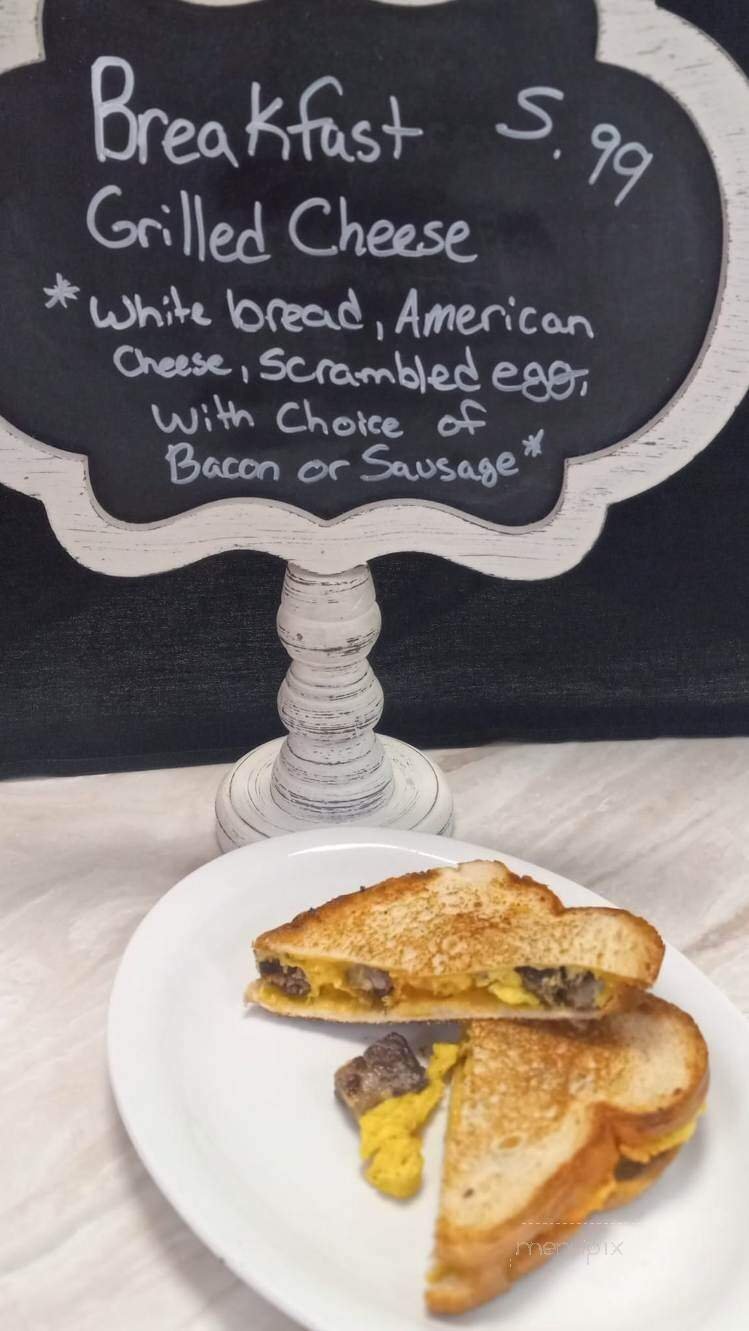 Breakfast 5.99
Grilled Cheese
*White bread, American
Cheese, Scrambled egg,
With Choice of
Bacon or Sausage*
menupix